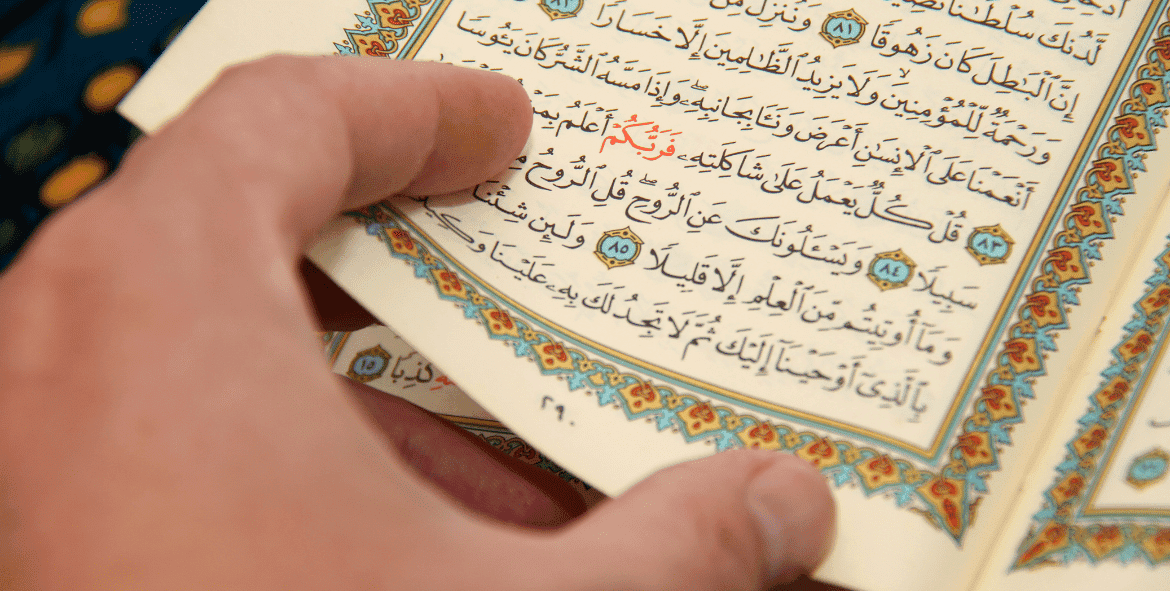 لَّدُنكَ سُلْطَٰنًا
إِنَّ ٱلْبَٰطِلَ كَانَ زَهُوقًا ٨١ وَنُنَزِّلُ مِنَ
وَرَحْمَةٌ لِّلْمُؤْمِنِينَ ۙ وَلَا يَزِيدُ ٱلظَّٰلِمِينَ إِلَّا خَسَارًا ٨٢
أَنْعَمْنَا عَلَى ٱلْإِنسَٰنِ أَعْرَضَ وَنَـَٔا بِجَانِبِهِۦ ۖ وَإِذَا مَسَّهُ ٱلشَّرُّ كَانَ يَـُٔوسًا
٨٣ قُلْ كُلٌّ يَعْمَلُ عَلَىٰ شَاكِلَتِهِۦ فَرَبُّكُمْ أَعْلَمُ بِمَنْ
سَبِيلًا ٨٤ وَيَسْـَٔلُونَكَ عَنِ ٱلرُّوحِ ۖ قُلِ ٱلرُّوحُ
وَمَآ أُوتِيتُم مِّنَ ٱلْعِلْمِ إِلَّا قَلِيلًا ٨٥ وَلَئِن شِئْنَا
بِٱلَّذِىٓ أَوْحَيْنَآ إِلَيْكَ ثُمَّ لَا تَجِدُ لَكَ بِهِۦ عَلَيْنَا وَكِيلًا
٢٩٠
كَذِبًا ١٥